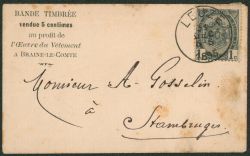 BANDE TIMBRÉE
vendue 5 centimes
au profit de
l'Œuvre du Vêtement
à BRAINE-LE-COMTE
Monsieur A. Gosselin
à
Stambruges